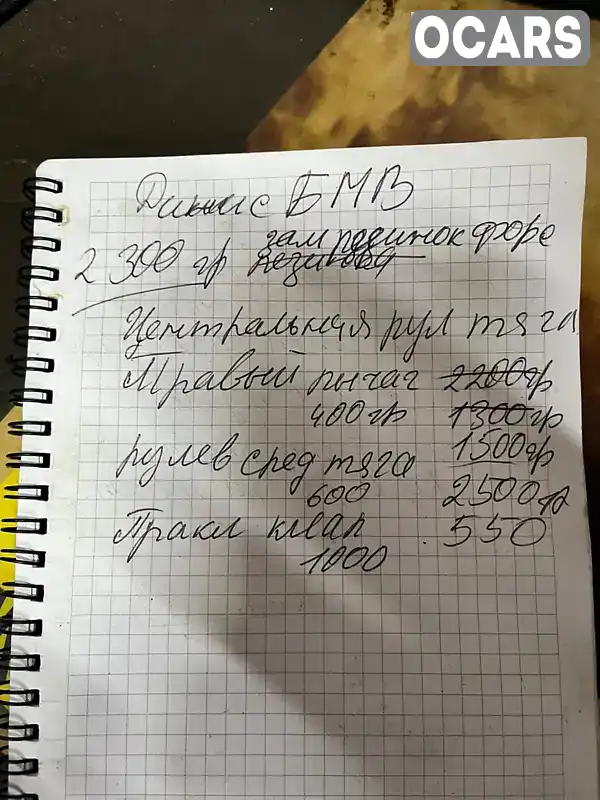 OCARS
Динис БМВ
зам резинок форс
2 300 гр резинова
Центральная рул тяга
Правый рычаг 2200гр
400 гр 1300гр
1500гр
рулев сред тяга
600 2500гр
Пракл клап 550
1000